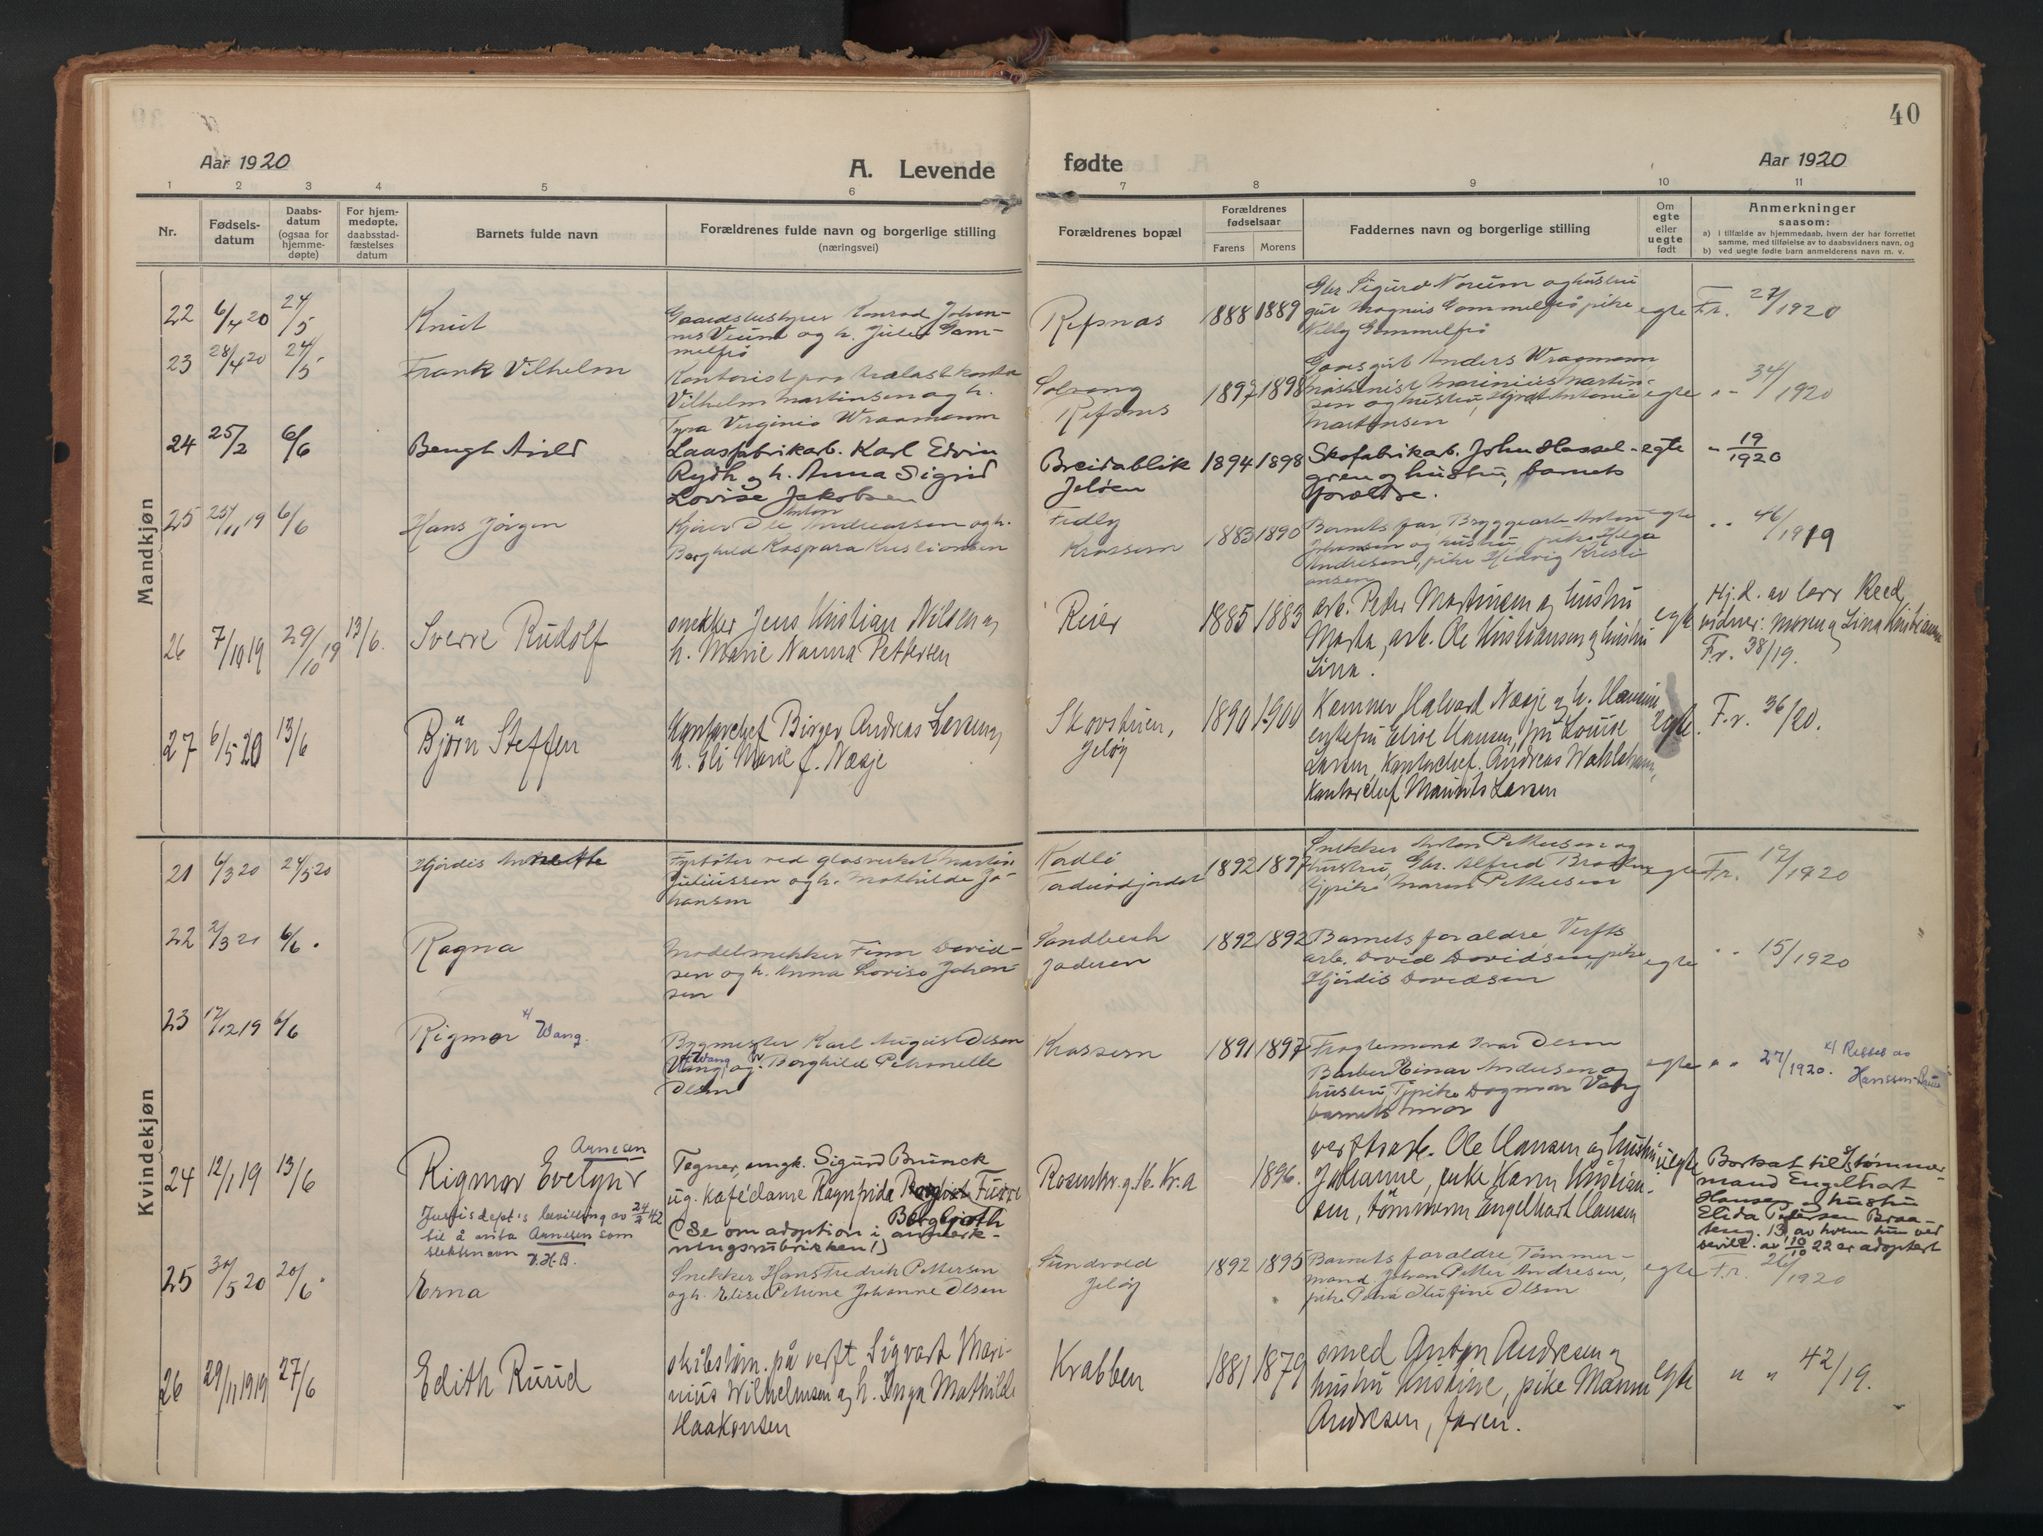 40
Aar 1920
A. Levende
fødte
Aar 1920
1 2 3 4 5 6 7 8 9 10 11
Nr.
Fødsels-
datum
Daabs-
datum
(ogsaa for
hjemme-
døpte)
For hjem-
medøpte,
daabsstad-
fæstelses
datum
Barnets fulde navn
Forældrenes fulde navn og borgerlige stilling
(næringsvei)
Forældrenes bopæl
Forældrenes
fødselsaar
Farens Morens
Faddernes navn og borgerlige stilling
Om
egte
eller
uegte
født
Anmerkninger
saasom:
a) i tilfælde av hjemmedaab, hvem der har forrettet
samme, med tilføielse av to daabsvidners navn, og
b) ved uegte fødte barn anmelderens navn m. v.
Mandkjøn
22 6/4 20 24/5
Knut
Refsnæs
1888 1889
Gbr. Sigurd Norum og hustru
egte Fr. 27/1920
23 28/4 20 24/5
Frank Vilhelm
Vilhelm Martinsen og h.
Solvang
Refsnæs
1897 1898
egte " 34/1920
24 25/2 6/6
Bengt Arild
Laasfabrikarb. Karl Edvin
Rydh og h. Anna Sigrid
Lovise Jakobsen
Breidablik
Jeløen
1894 1898
Skofabrikarb. John Hassel-
gren og hustru, barnets
forældre.
egte " 19/1920
25 25/11 19 6/6
Hans Jørgen
Anton
Borghild Kaspara Kristiansen
Krossern
1883 1890
Barnets far, Bryggearb. Anton
Johansen og hustru, pike Helga
Andresen, pike Hedvig Kristi-
ansen
egte " 46/1919
26 7/10 19 29/10 19 13/6.
Sverre Rudolf
snekker Jens Kristian Nilsen og
h. Marie Nanna Pettersen
Reier
1885 1883
arb. Peter Martinsen og hustru
Marta, arb. Ole Kristiansen og hustru
Lina.
egte
Hj.d. av lærer Reed,
vidner: moren og Lina Kristiansen
Fr. 38/19.
27 6/5 20 13/6
Björn Steffen
Kontorchef Birger Andreas Larsen og
h. Eli Marie f. Næsje
Skovstuen,
Jeløy
1890 1900
Kæmner Halvard Næsje og h. Hansine
enkefru Elise Hansen, fru Louise
Larsen, Kontorchef. Andreas Wahlstrøm,
Kontorchef Mauritz Larsen
egte. Fr. 36/20.
Kvindekjøn
21 6/3 20 24/5 20
Hjördis Annette
Fyrbøter ved glasverket Martin
Juliussen og h. Mathilde Jo-
hansen
1892 1897
Snekker Anton Pettersen og
egte Fr. 17/1920
22 2/3 20 6/6.
Ragna
Modelsnekker Finn David-
sen og h. Anna Lovise Johan-
sen
1892 1892
Barnets forældre, Verfts
arb. David Davidsen, pike
Hjördis Davidsen
egte " 15/1920
23 17/12 19 6/6
Rigmor x) Wang.
Bygmester Karl August Olsen
Wang og h. Borghild Petronelle
Olsen
Krossern
1891 1897
Fragtemand Ivar Olsen
Barber Einar Andersen og
hustru, Tjpike Dagmar Vang
barnets mor
egte " " 27/1920. x) Rettet av
24 12/1 19 13/6
Arnesen
Rigmor Evelyn
Justisdept's bevilling av 24/2 42
til å anta Arnesen som
slektsnavn
H.B.
Tegner, ungk. Sigurd Brunck
ug. kafédame Ragnfrida Furre
Bergljoth
(Se om adoption i anmerk-
ningsrubrikken!)
Rosenkr. g. 16. Kr.a
1896.
verftsarb. Ole Hansen og hustru
Julianne, enke Karen Kristian-
sen, tömmerm Engelhart Hansen
uegte
Bortsat til tömmer-
mand Engelhart
Hansen og hustru
Elida Petersen Braa-
ten, av hvem hun ved
bevill. av 10/10 22 er adoptert
25 30/5 20 20/6.
Erna
Snekker Hans Fredrik Pettersen
og h. Elise Petrine Johanne Olsen
Sundvold
Jeløy
1892 1895
Barnets forældre, Tömmer-
mand Johan Petter Andresen,
egte Fr. 26/1920
26 29/11 1919 27/6
Edith Ruud
skibstöm. på verft Sigvart Mari-
nius Wilhelmsen og h. Inga Mathilde
Haakonsen
Krabben
1881 1879
smed Anton Andresen og
hustru Kristine, pike Manna
Andresen, faren.
egte " " 42/19.